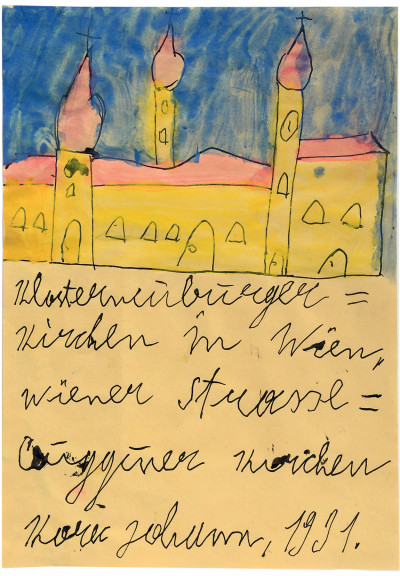 Klosterneuburger=
Kirchen in Wien,
wiener Strasse=
Kirchen
Korec Johann, 1931.